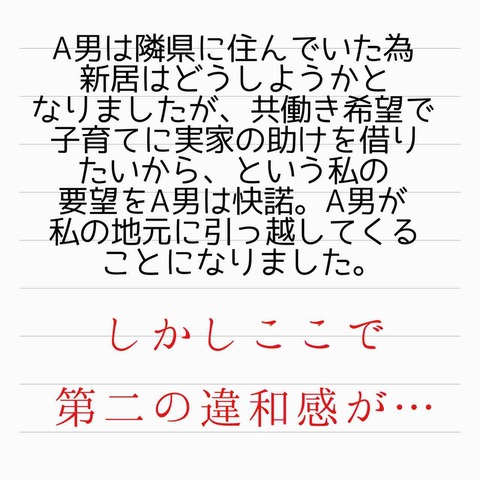 A男は隣県に住んでいた為
新居はどうしようかと
なりましたが、共働き希望で
子育てに実家の助けを借り
たいから、という私の
要望をA男は快諾。A男が
私の地元に引っ越してくる
ことになりました。
しかしここで
第二の違和感が…